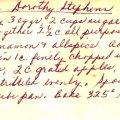 Dorothy Stephens
3 eggs, 2 cups sugar
together 2 1/2 c all purpose
cinnamon & allspice
in 1 c. finely chopped
2 c grated apples,
pan. Bake 325°